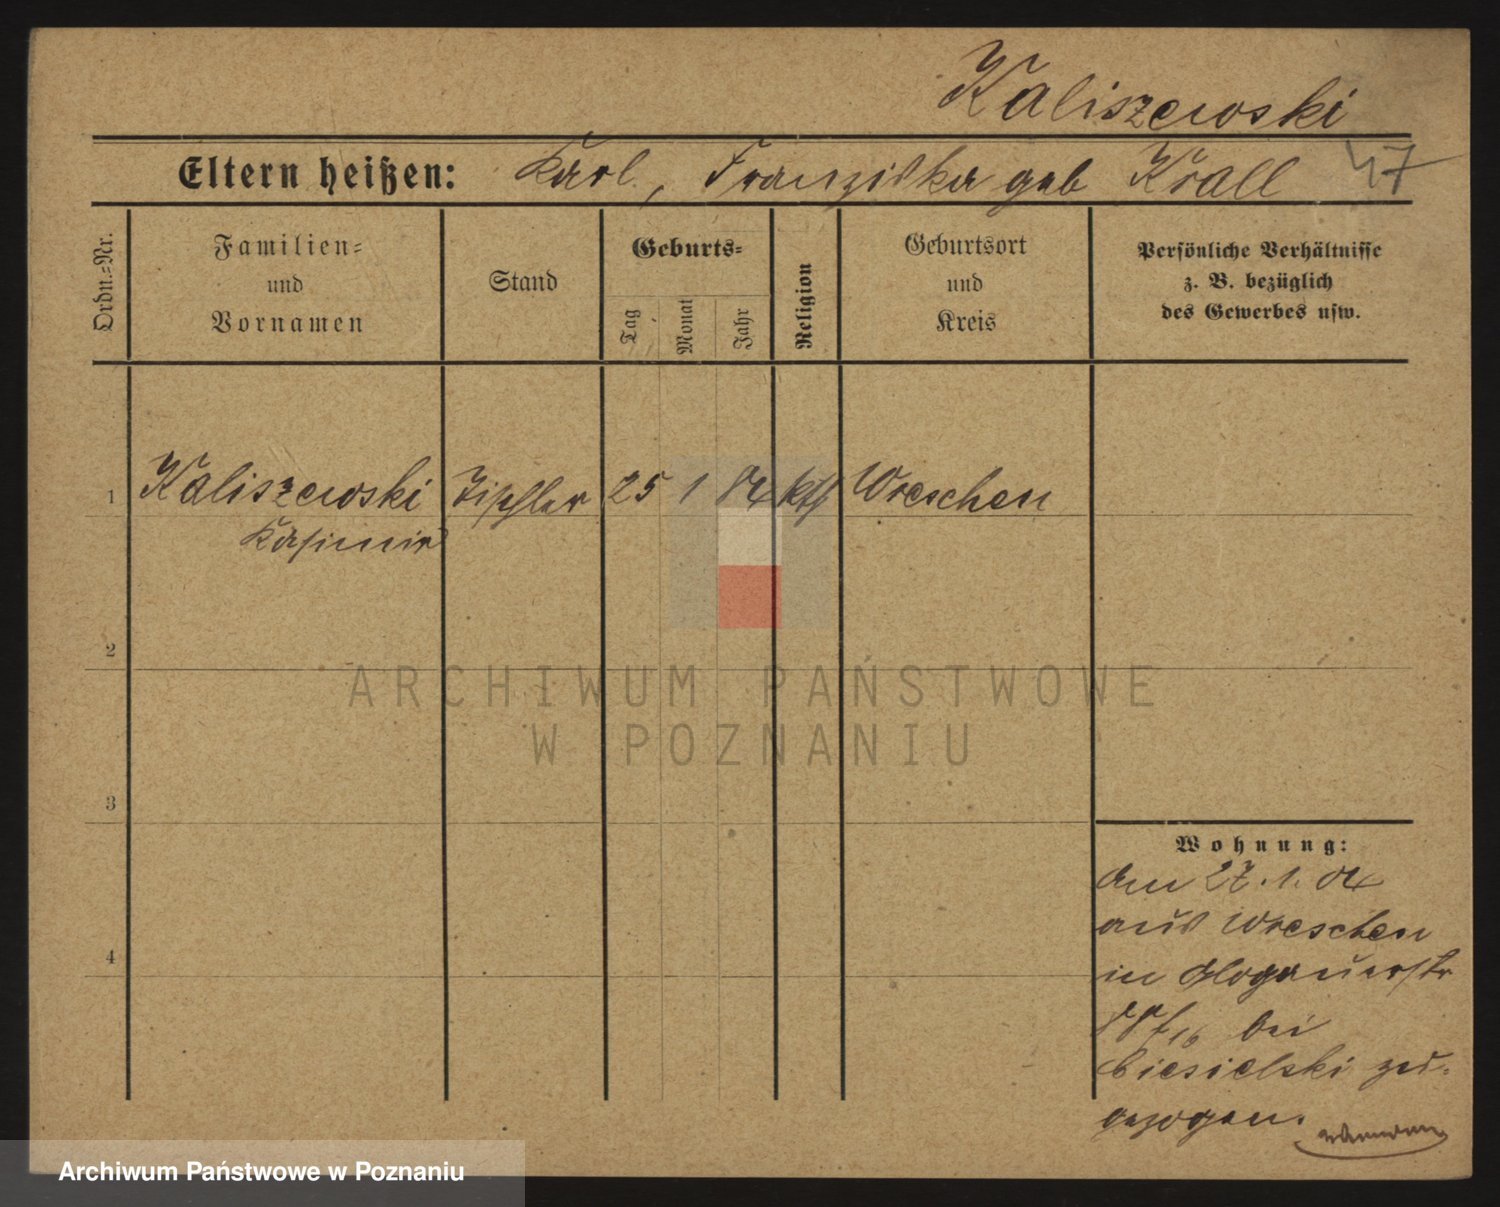 Kaliszewski
Eltern heißen: Karl, Franziska geb Krall 47
Ordn.=Nr.
Familien=
und
Vornamen
Stand
Geburts=
Tag
Monat
Jahr
Religion
Geburtsort
und
Kreis
Persönliche Verhältnisse
z. B. bezüglich
des Gewerbes usw.
1 Kaliszewski Tischler 25 1 84 kth Wreschen
Kasimir
2
ARCHIWUM PAŃSTWOWE
W POZNANIU
3
Wohnung:
Am 27.1.04
aus Wreschen
4
in Glogauerstr
bei
Ciesielski zu-
gezogen.
Archiwum Państwowe w Poznaniu